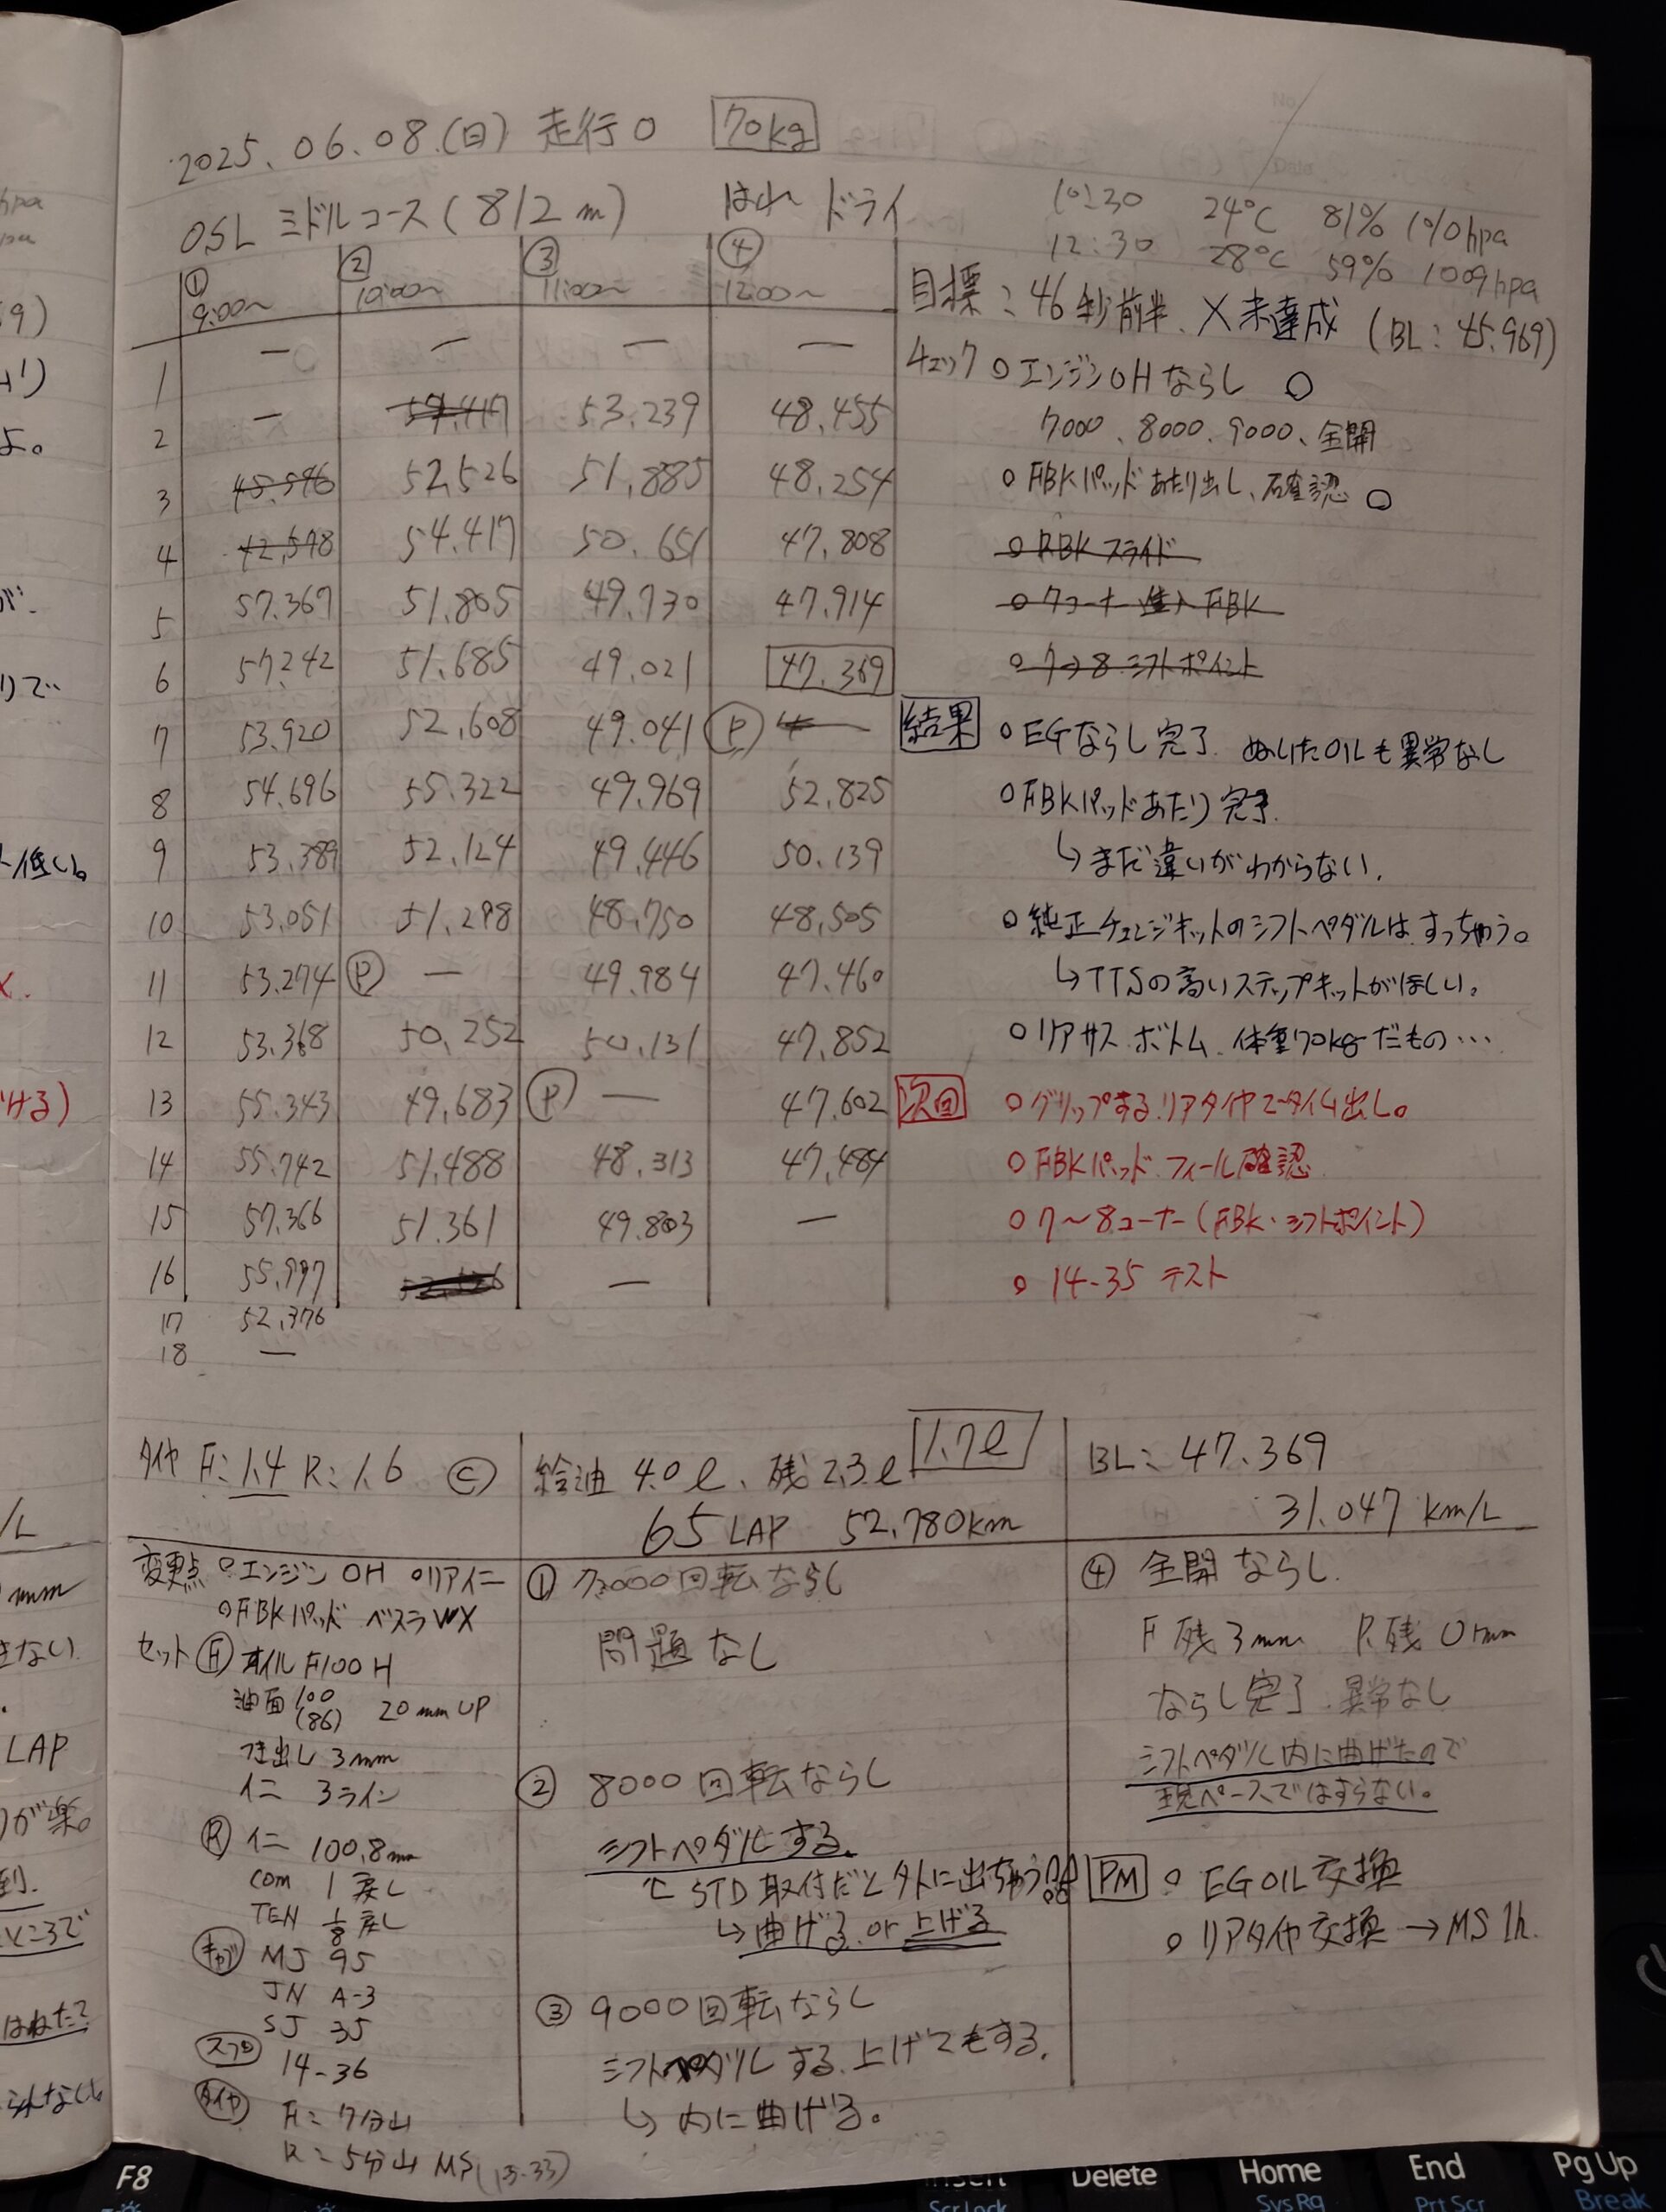 2025.06.08.(日) 走行○ 70kg
OSL ミドルコース(812m) はれ ドライ
10:30 24℃ 81% 1010hpa
12:30 28℃ 59% 1009hpa
① 9:00〜 ② 10:00〜 ③ 11:00〜 ④ 12:00〜
1 — — — —
2 — 57.417 53.239 48.455
3 48.596 52.526 51.885 48.254
4 42.598 54.417 50.651 47.808
5 57.367 51.805 49.730 47.914
6 57.242 51.685 49.021 47.369
7 53.920 52.608 49.041 Ⓟ —
8 54.696 55.322 49.969 52.825
9 53.389 52.124 49.446 50.139
10 53.051 51.298 48.750 48.505
11 53.274 Ⓟ — 49.984 47.460
12 53.368 50.252 50.131 47.852
13 55.343 49.683 Ⓟ — 47.602
14 55.742 51.488 48.313 47.484
15 57.366 51.361 49.803 —
16 55.997 —
17 52.376
18 —
目標:46秒前半. ×未達成 (BL:45.969)
チェック ○エンジンOHならし ○
7000、8000、9000、全開
○FBKパッドあたり出し、確認 ○
○RBKスライド
○7コーナー進入FBK
○7→8 シフトポイント
結果 ○EGならし完了. ぬいたOILも異常なし
○FBKパッドあたり完了.
↳まだ違いがわからない.
○純正チェンジキットのシフトペダルは、すっちゃう。
↳TTSの高いステップキットがほしい。
○リアサスボトム、体重70kgだもの…
次回 ○グリップするリアタイヤでタイム出し。
○FBKパッド フィール確認
○7〜8コーナー(FBK・シフトポイント)
○14-35 テスト
タイヤ F:1.4 R:1.6 Ⓒ
給油 4.0ℓ、残2.3ℓ 1.7ℓ
65LAP 52.780km
BL:47.369
31.047 km/L
変更点 ○エンジンOH ○リアイニ
○FBKパッド ベスラ VX
セット Ⓕ オイル F100H
油面 100 (86) 20mmUP
つき出し 3mm
イニ 3ライン
Ⓡ イニ 100.8mm
COM 1戻し
TEN 1/8戻し
キャブ MJ 95
JN A-3
SJ 35
スプロ 14-36
タイヤ F:7分山
R:5分山 MS(15-33)
① 7000回転ならし
問題なし
② 8000回転ならし
シフトペダルする.
↑STD取付だと外に出ちゃう!!
↳曲げる.or 上げる
③ 9000回転ならし
シフトペダルする.上げてもする.
↳内に曲げる。
④ 全開ならし.
F残3mm R残0mm
ならし完了.異常なし
シフトペダル内に曲げたので
現ペースではすらない。
PM ○ EGOIL交換
○ リアタイヤ交換→MS 1h.
F8
Insert
ScrLock
Delete
Home
SysRq
End
PrtScr
PgUp
Break